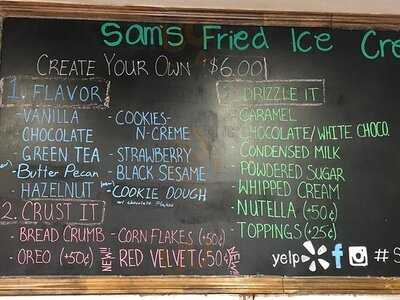 Sam's Fried Ice Cre
CREATE YOUR OWN $6.00
1. FLAVOR
-VANILLA
-CHOCOLATE
-GREEN TEA
-Butter Pecan
-HAZELNUT
-COOKIES-
N-CREME
-STRAWBERRY
-BLACK SESAME
-COOKIE DOUGH
2. CRUST IT
-BREAD CRUMB
-OREO (+50¢)
-CORN FLAKES (+50¢)
NEW!!
-RED VELVET (+50¢)
DRIZZLE IT
-CARAMEL
-CHOCOLATE/WHITE CHOCO.
-CONDENSED MILK
-POWDERED SUGAR
-WHIPPED CREAM
-NUTELLA (+50¢)
-TOPPINGS (+25¢)
yelp f #S